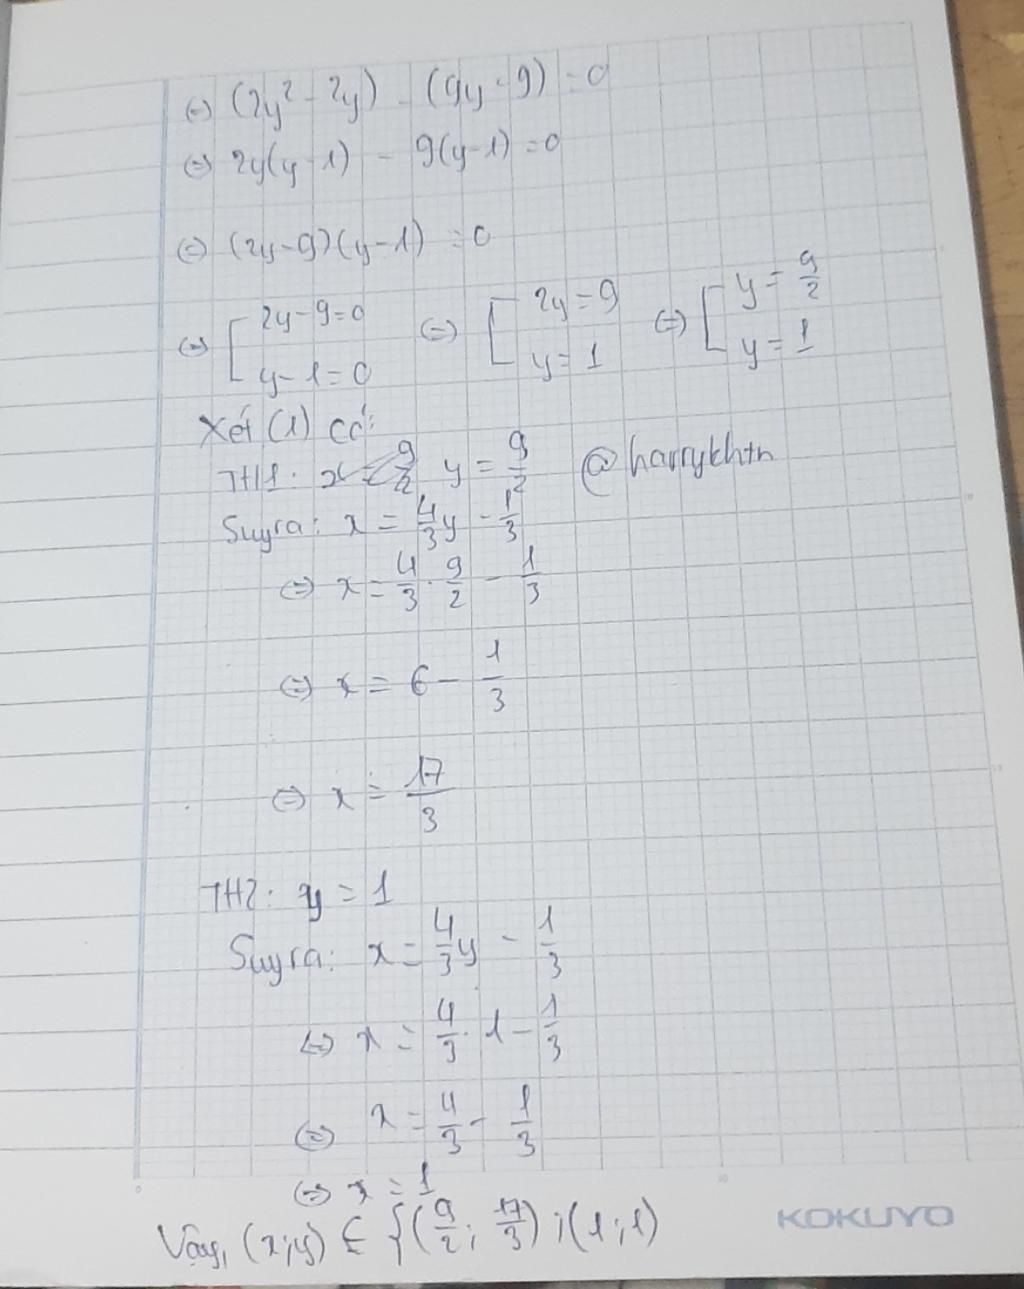 ⇔ (2y² - 2y) - (9y - 9) = 0
⇔ 2y(y-1) - 9(y-1) = 0
⇔ (2y-9)(y-1) = 0
⇔ [ 2y-9=0 ; y-1=0 ⇔ [ 2y=9 ; y=1 ⇔ [ y=9/2 ; y=1
Xét (1) có:
TH1: y = 9/2 @harrykhtn
Suy ra: x = 4/3 y - 1/3
⇔ x = 4/3 · 9/2 - 1/3
⇔ x = 6 - 1/3
⇔ x = 17/3
TH2: y = 1
Suy ra: x = 4/3 y - 1/3
⇔ x = 4/3 · 1 - 1/3
⇔ x = 4/3 - 1/3
⇔ x = 1
Vậy, (x;y) ∈ {(9/2; 17/3);(1;1)
KOKUYO